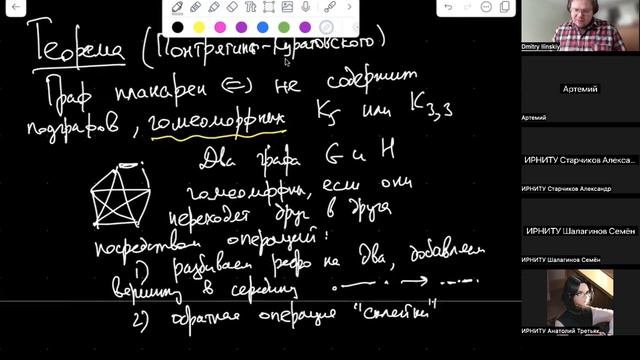 Теорема (Понтрягина-Куратовского)
Граф планарен ⇔ не содержит
подграфов, гомеоморфных K5 или K3,3
Два графа G и H
гомеоморфны, если они
переходят друг в друга
посредством операций:
1) разбиваем ребро на два, добавляем
вершину в середину
2) обратная операция "склейки"
Dmitry Ilinskiy
Артемий
Артемий
ИРНИТУ Старчиков Алекса...
ИРНИТУ Старчиков Александр
ИРНИТУ Шалагинов Семён
ИРНИТУ Шалагинов Семён
ИРНИТУ Анатолий Третьяк...